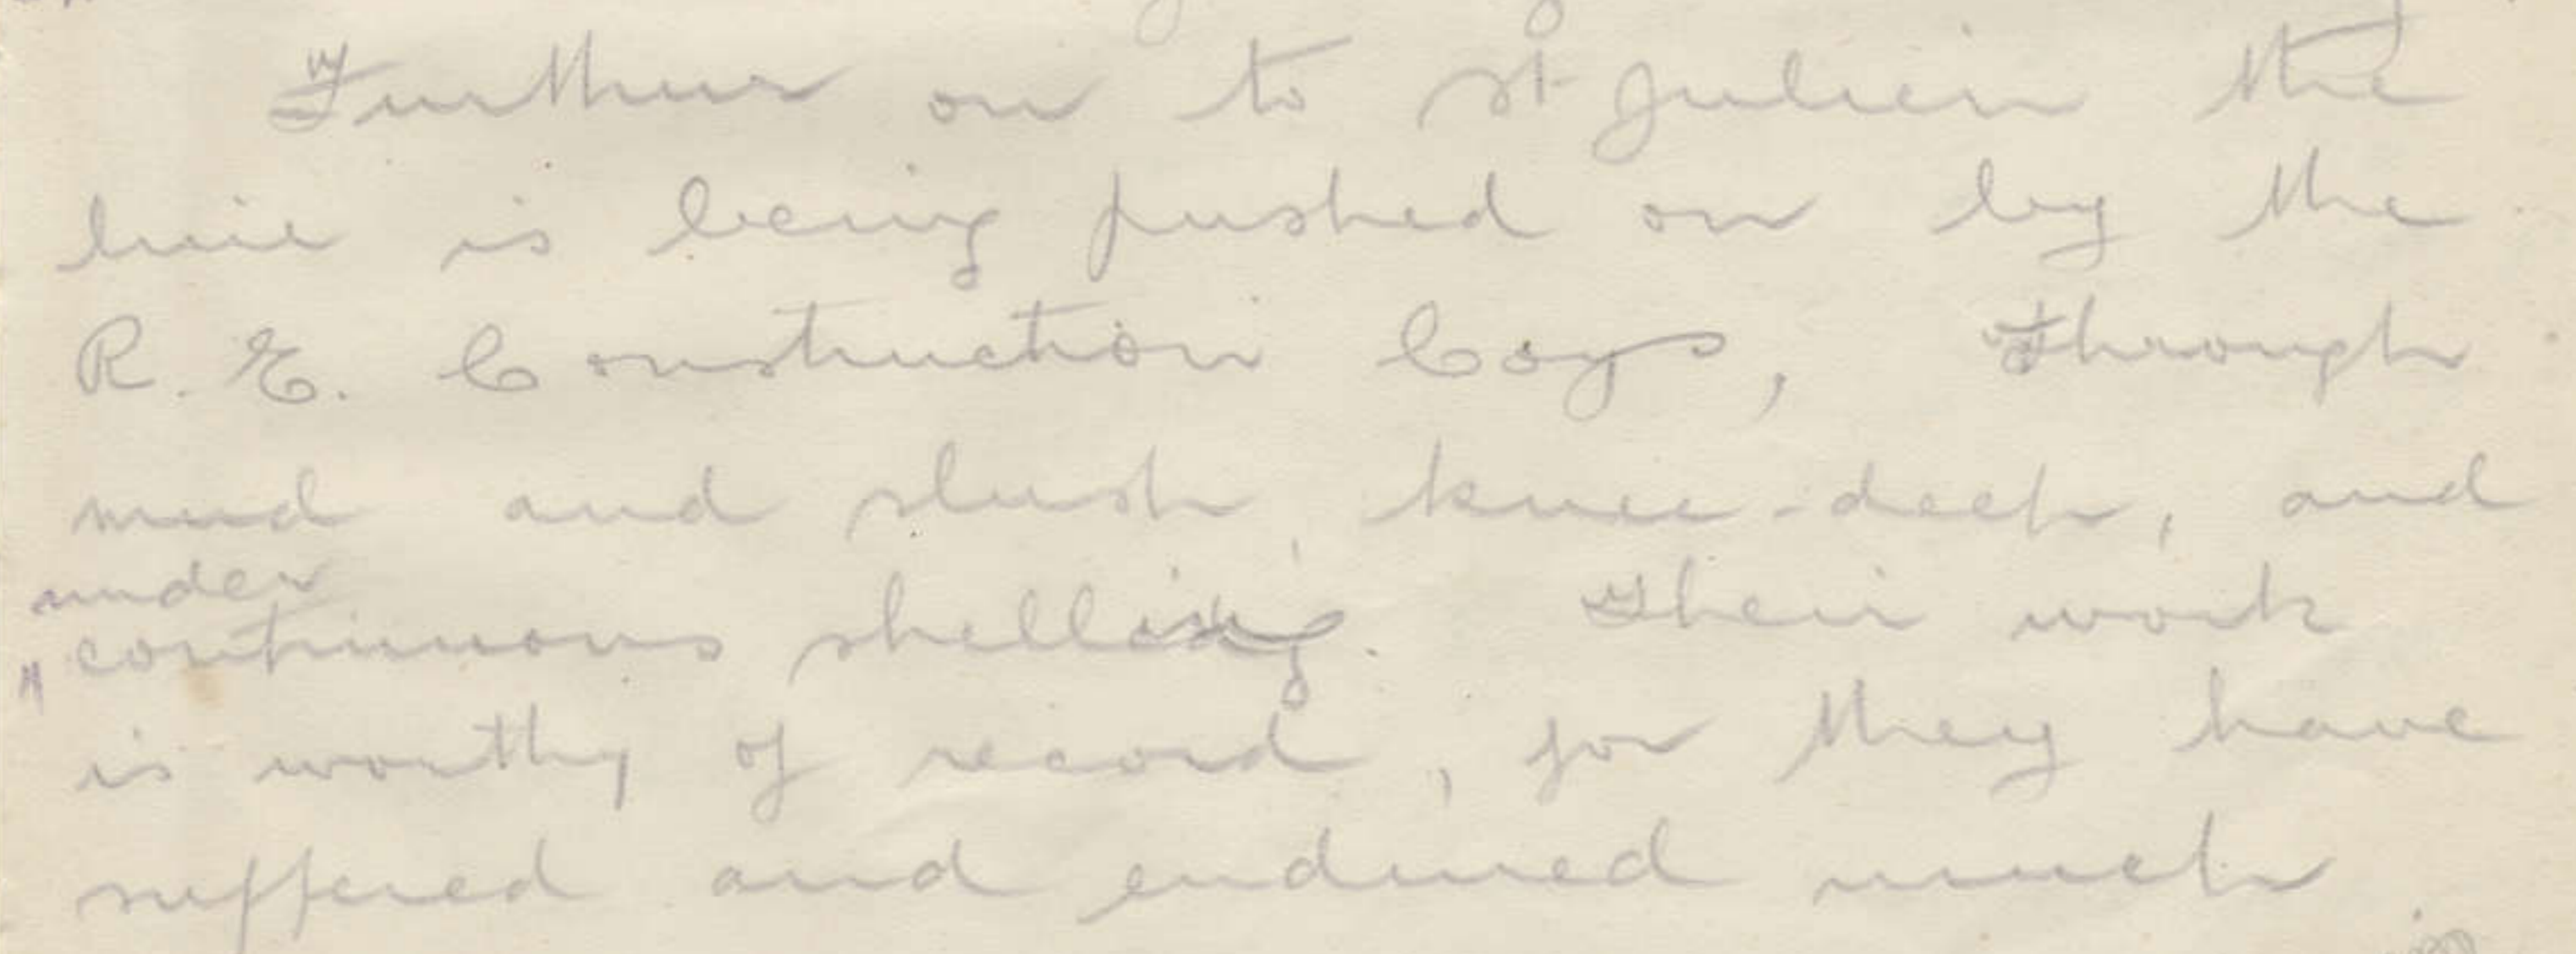 Further on to St Julien the
line is being pushed on by the
R. E. Construction Coys, through
mud and slush, knee-deep, and
under
continuous shelling. Their work
is worthy of record, for they have
suffered and endured much